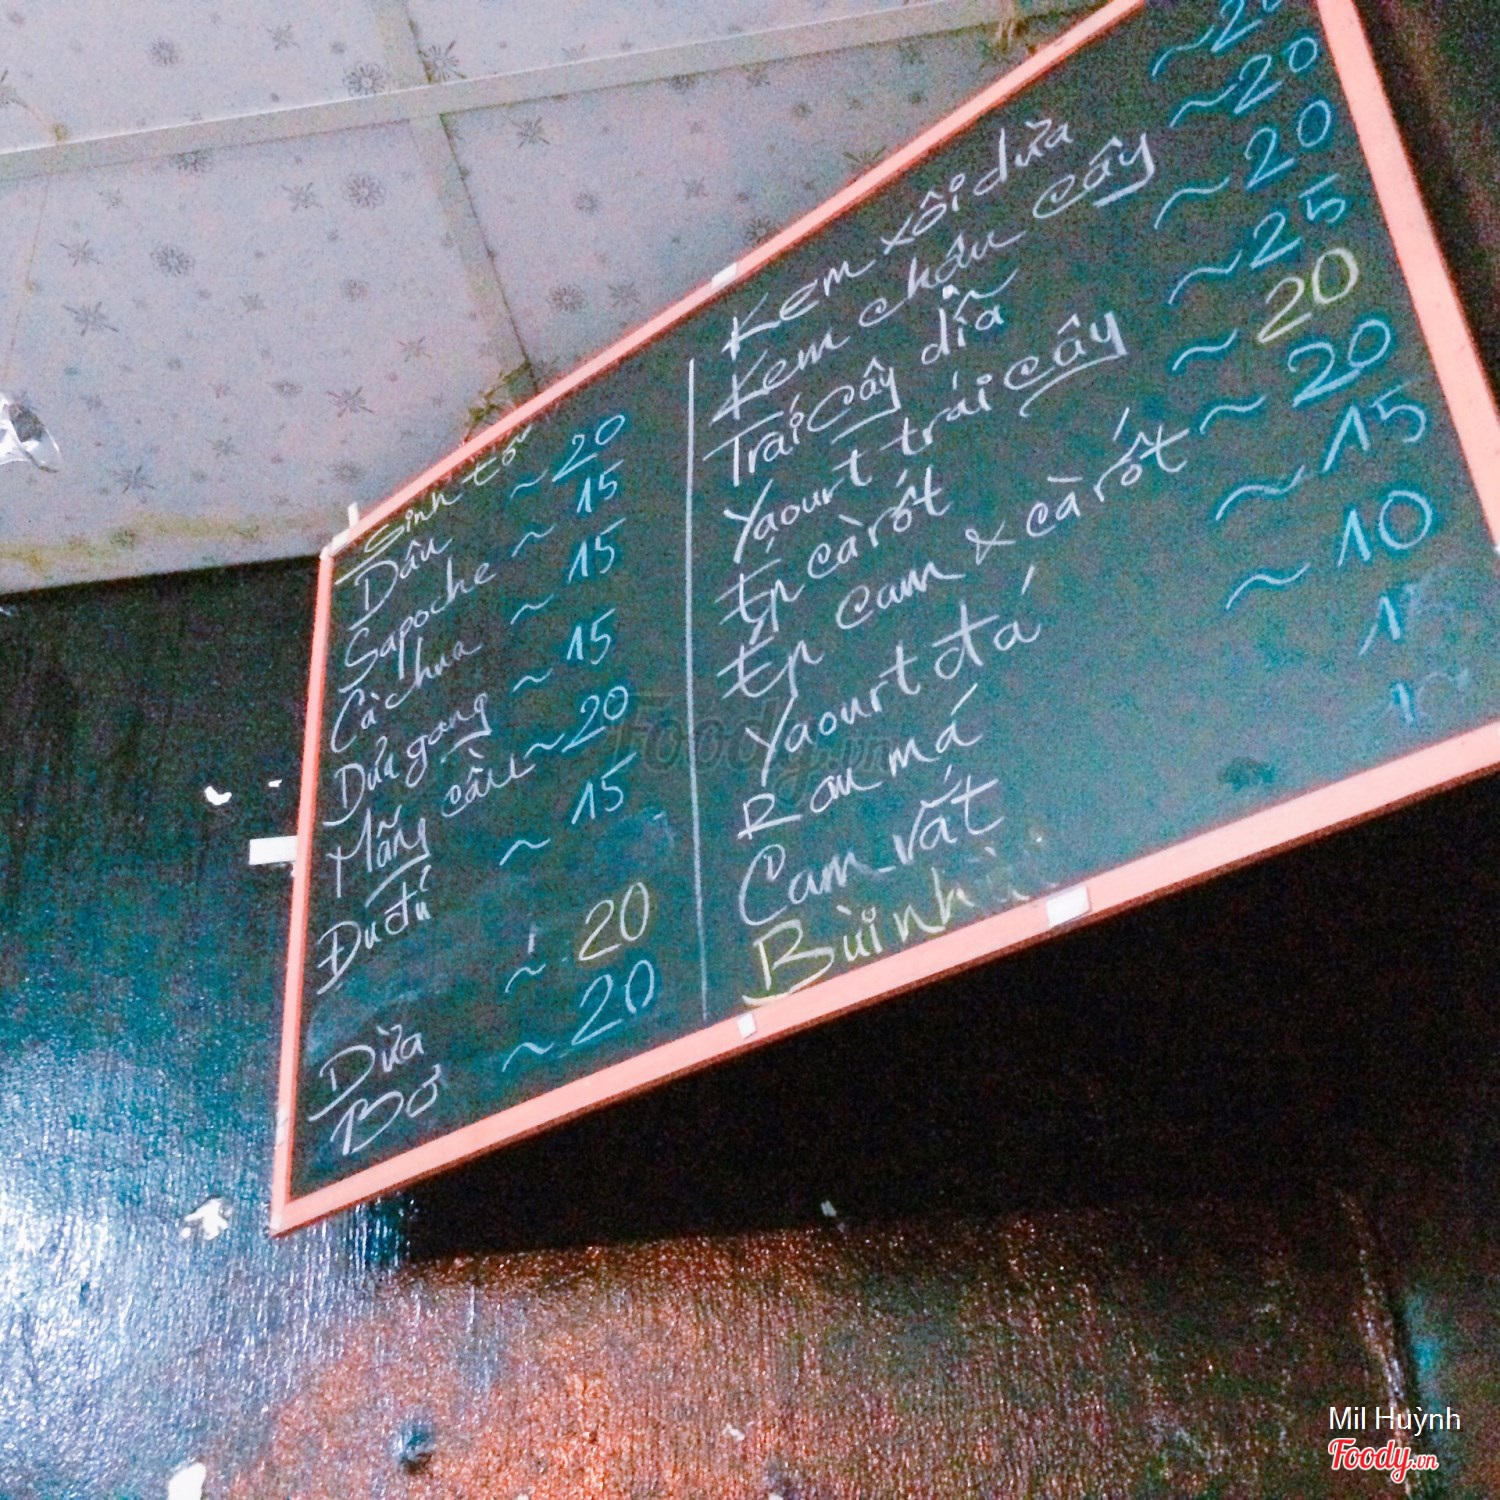 Sinh tố
Dâu ~ 20
Sapoche ~ 15
Cà chua ~ 15
Dưa gang ~ 15
Mãng cầu ~ 20
Đu đủ ~ 15
Dừa ~ 20
Bơ ~ 20
Kem xôi dừa ~ 20
Kem chậu cây ~ 20
Trái cây dĩa ~ 20
Yaourt trái cây ~ 25
Ép cà rốt ~ 20
Ép cam & cà rốt ~ 20
Yaourt đá ~ 15
Rau má ~ 10
Cam vắt 15
Bùi nhùi 10
Foody.vn
Mil Huỳnh
Foody.vn